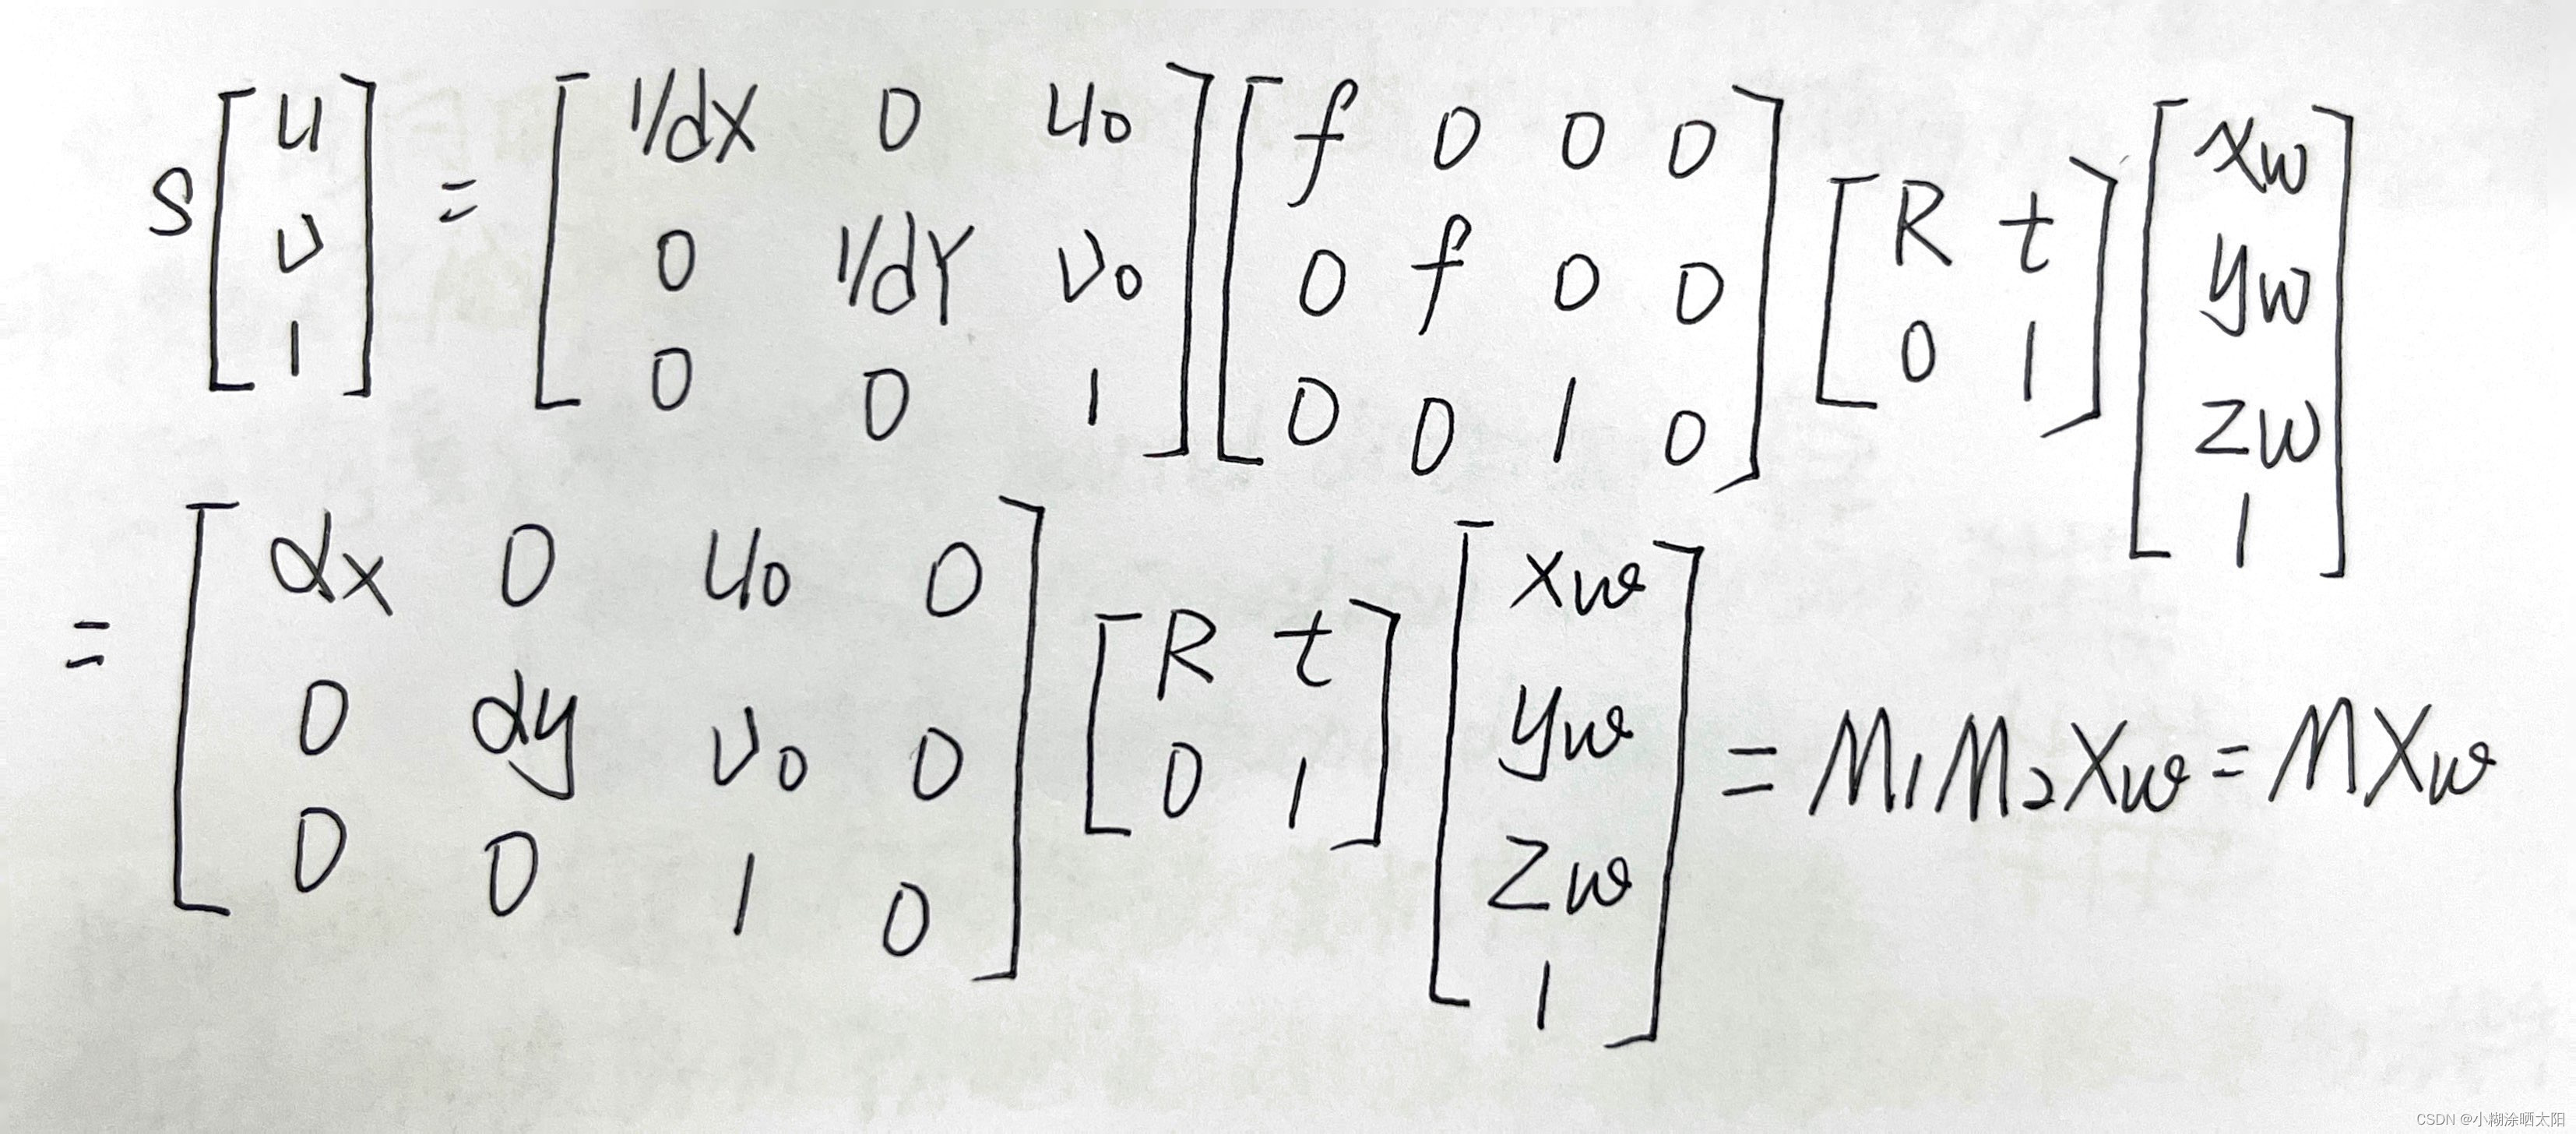 $s\begin{bmatrix} u \\ v \\ 1 \end{bmatrix} = \begin{bmatrix} 1/dX & 0 & u_0 \\ 0 & 1/dY & v_0 \\ 0 & 0 & 1 \end{bmatrix} \begin{bmatrix} f & 0 & 0 & 0 \\ 0 & f & 0 & 0 \\ 0 & 0 & 1 & 0 \end{bmatrix} \begin{bmatrix} R & t \\ 0 & 1 \end{bmatrix} \begin{bmatrix} x_w \\ y_w \\ z_w \\ 1 \end{bmatrix}$
$= \begin{bmatrix} \alpha_x & 0 & u_0 & 0 \\ 0 & \alpha_y & v_0 & 0 \\ 0 & 0 & 1 & 0 \end{bmatrix} \begin{bmatrix} R & t \\ 0 & 1 \end{bmatrix} \begin{bmatrix} x_w \\ y_w \\ z_w \\ 1 \end{bmatrix} = M_1 M_2 X_w = M X_w$
CSDN @小糊涂晒太阳